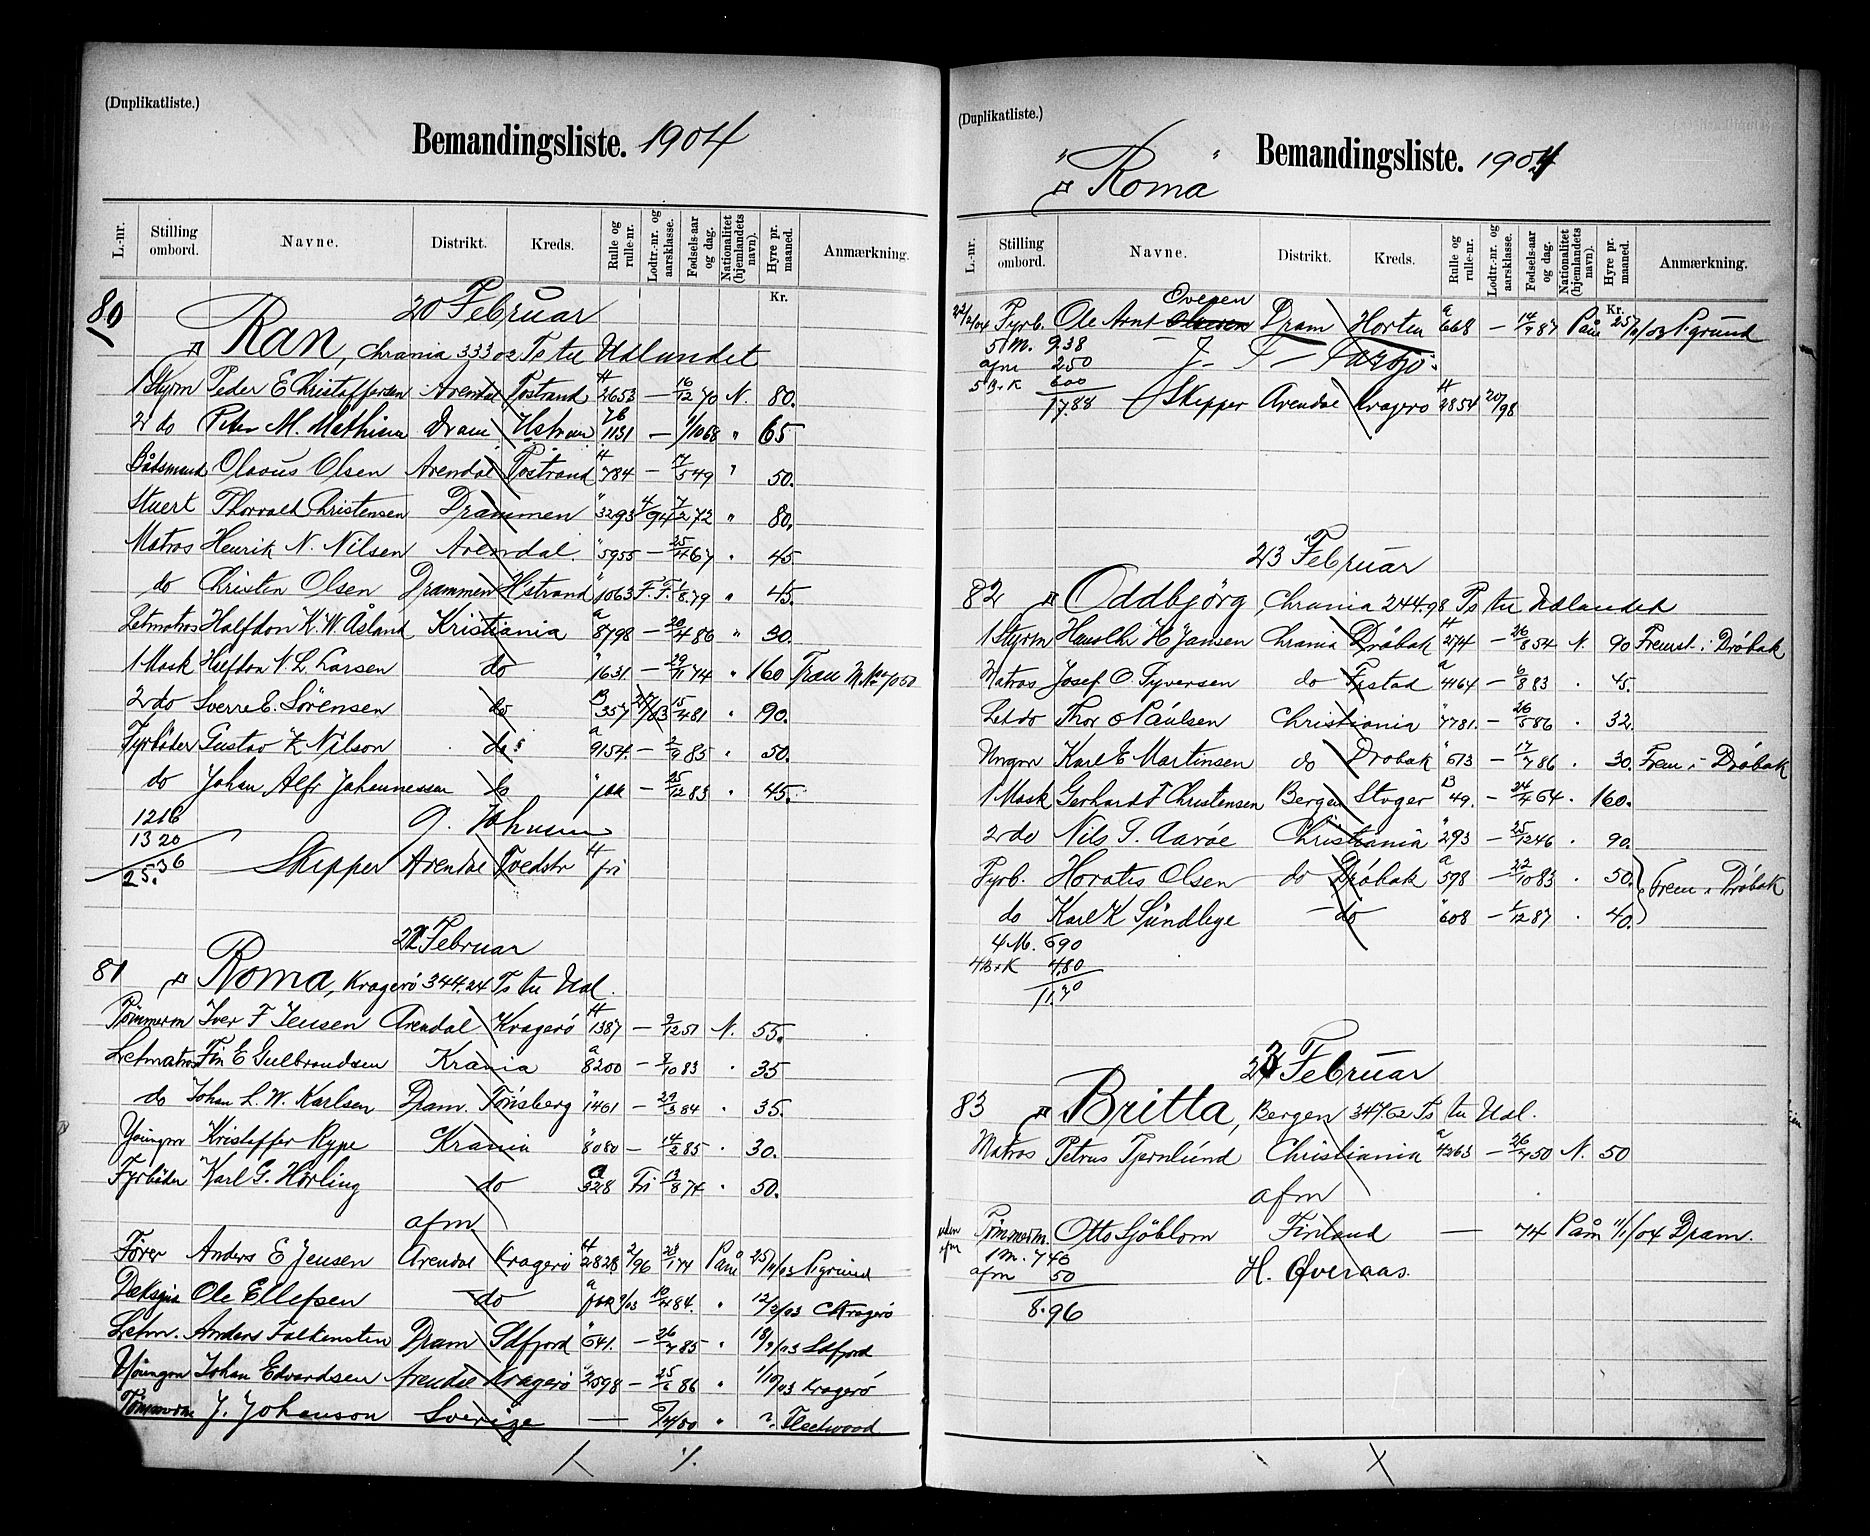 (Duplikatliste.)
Bemandingsliste. 1904
L.-nr. Stilling ombord. Navne. Distrikt. Kreds. Rulle og rulle-nr. Lodtr.-nr. og aarsklasse. Fødsels-aar og dag. Nationalitet (hjemlandets navn). Hyre pr. maaned. Anmærkning.
Kr.
80 20 Februar
Ran, Chrania 333 02 Ts til Udlandet
1 Styrm Peder E Christoffersen Arendal Postrand H 2653 — 16/12 70 N. 80.
2 do Peter M. Mathisen Dram Hstrand 1131 — 1/10 68 " 65
Bådsmand Olavus Olsen Arendal Postrand H 784 — 17/5 49 " 50.
Stuert Thorvald Christensen Drammen " 3293 4/94 7/2 72 " 80.
Matros Henrik N. Nilsen Arendal " 5955 — 25/4 67 " 45
do Christen Olsen Drammen Hstrand " 1063 F.F. 1/8 79 " 45.
Letmatros Halfdan K. W. Åsland Kristiania a 8798 — 20/4 86 " 30.
1 Mask Halfdan N. L. Larsen do " 1631 — 29/11 74 " 160
2 do Sverre E. Sörensen do B 357 15/4 81 " 90.
Fyrböder Gustav K Nilson do a 9154. — 2/9 85 " 50.
do Johan Alfr Johannessen do — 25/12 83 " 45.
1216
1320
25.36
Johnsen
Skipper Arendal Tvedstr H fri
22 Februar
81 Roma, Kragerö 344.24 Ts til Udl.
Tömmerm Iver F Jensen Arendal Kragerö H 1387 — 9/12 51 N. 55.
Letmatros Fin E Gulbrandsen Krania a 8200 — 9/10 83 " 35
do Johan L. W. Karlsen Dram. Tönsberg " 1461 — 29/3 84 " 35.
Youngm Kristoffer Rype Krania " 8080 — 14/2 85 " 30.
Fyrböder Karl G. Hörling do a 328 Fri 13/8 74 " 50.
afm
Förer Anders E Jensen Arendal Kragerö H 2828 2/96 23/1 74 Påm 25/11/03 Pgrund
Ole Ellefsen do 9/03 10/4 84. " 12/2/03 Kragerö
Letm. Anders Falkensten Dram Sdfjord " 641. — 26/7 85 " 18/9/03 Sdfjord
Youngm Johan Edvardsen Arendal Kragerö " 2598 — 25/6 86 " 1/10/03 Kragerö
Tömmerm J. Johanson Sverige — " ?. Fleetwood
(Duplikatliste.)
" Roma " Bemandingsliste. 1904
L.-nr. Stilling ombord. Navne. Distrikt. Kreds. Rulle og rulle-nr. Lodtr.-nr. og aarsklasse. Fødsels-aar og dag. Nationalitet (hjemlandets navn). Hyre pr. maaned. Anmærkning.
Kr.
22/2/04 Fyrb. Ole Arnt Olsen Ovesen Dram Horten a 668 — 14/9 87 Påm 25/11/03 Pgrund
5 M. 938
afm 250
5 B+K 600
17.88 Skipper Arendal Kragerö H 2854 20/98
23 Februar
82 Oddbjörg, Chrania 244.98 Ts til Udlandet
1 Styrm H Jansen Chrania Dröbak H 274 — 26/8 54 N. 90 Fremst. i Dröbak
Matros Josef O. Syversen do Fstad a 4164 — 6/8 83 45.
Let do Thor Paulsen Christiania " 7781. — 26/5 86 " 32.
Ungm Karl E Martinsen do Dröbak " 613 — 17/7 86 " 30. Frem i Dröbak
1 Mask Gerhard F Christensen Bergen B 49. — 24/4 64 " 160.
2 do Nils T. Aaröe Christiania " 293 — 25/12 46 " 90.
Fyrb. Horatis Olsen do Dröbak a 598 — 22/10 83 " 50.
Frem i Dröbak
do Karl K Sundlyge — do " 608 — 1/12 87 " 40.
4 M. 690
4 B+K 4.80
11.70
23 Februar
83 Britta, Bergen 347.62 Ts til Udl.
Matros Petrus Tjernlund Christiania a 4263 — 26/7 50 N. 50
afm
uden afm Tömmerm. Otto Sjöblom Finland — 74 Påm 11/1/04 Dram.
1 M. 746
afm 50
8.96
H. Øveraas.